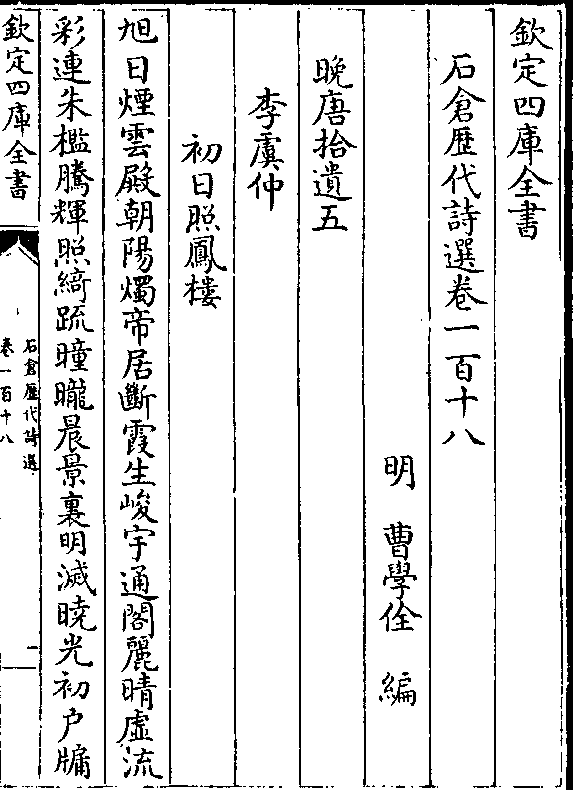 欽定四庫全書
石倉歴代詩選巻一百十八
明 曹學佺 編
晚唐拾遺五
李虞仲
初日照鳳樓
旭日煙雲殿朝陽燭帝居斷霞生峻宇通閣麗晴虛流
彩連朱檻騰輝照綺疏曈曨晨景裏明滅曉光初户牖
欽定四庫全書
石倉歷代詩選
卷一百十八
一